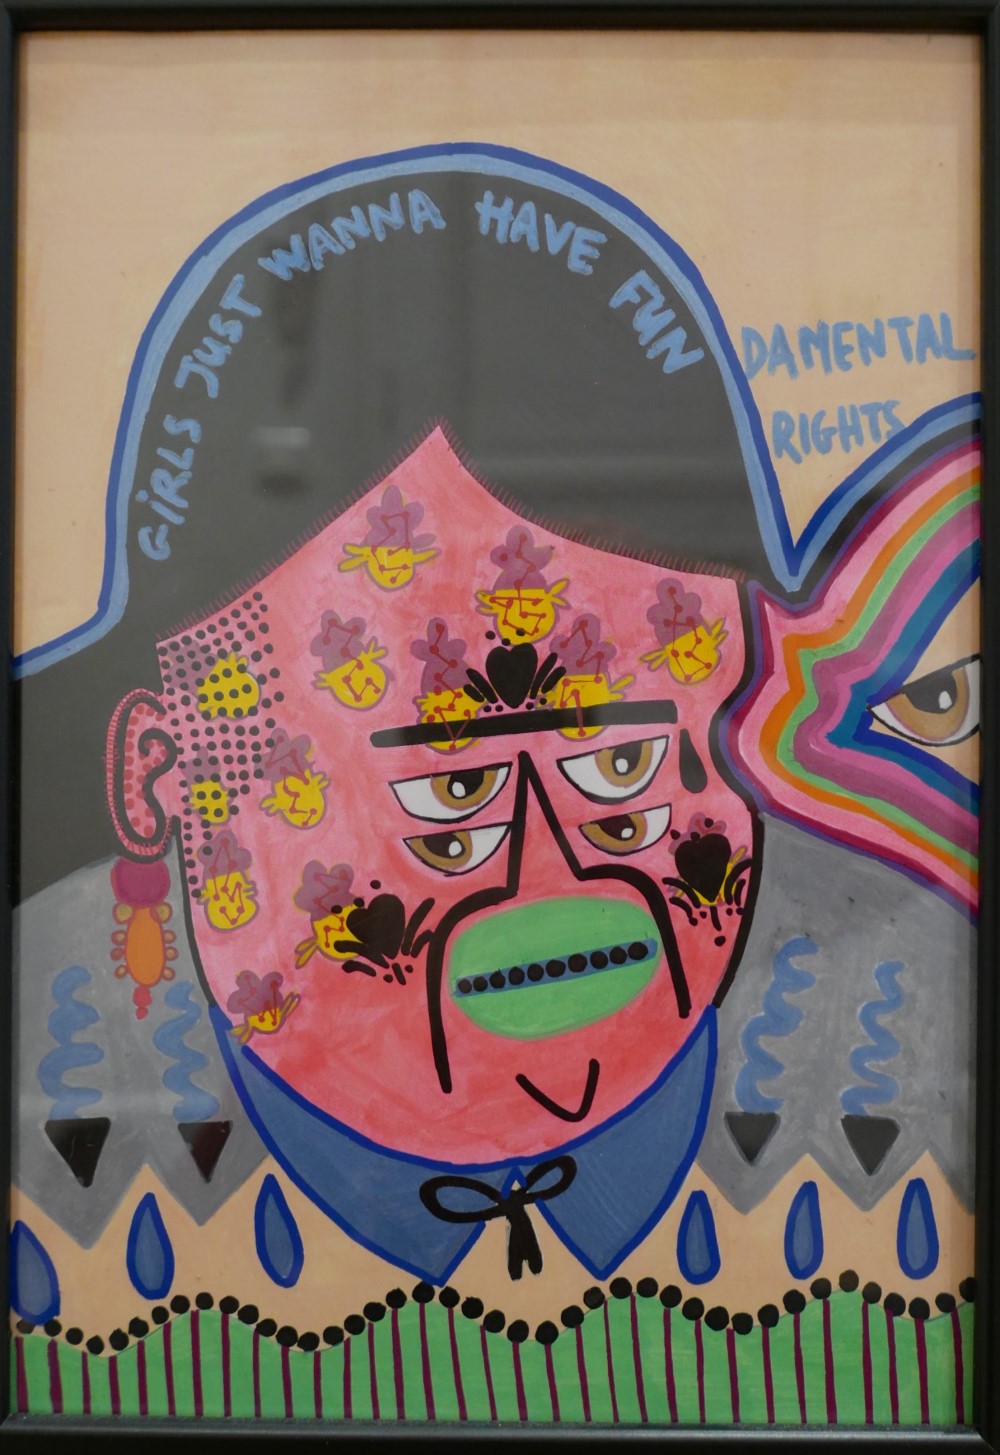 GIRLS JUST WANNA HAVE FUN
DAMENTAL
RIGHTS